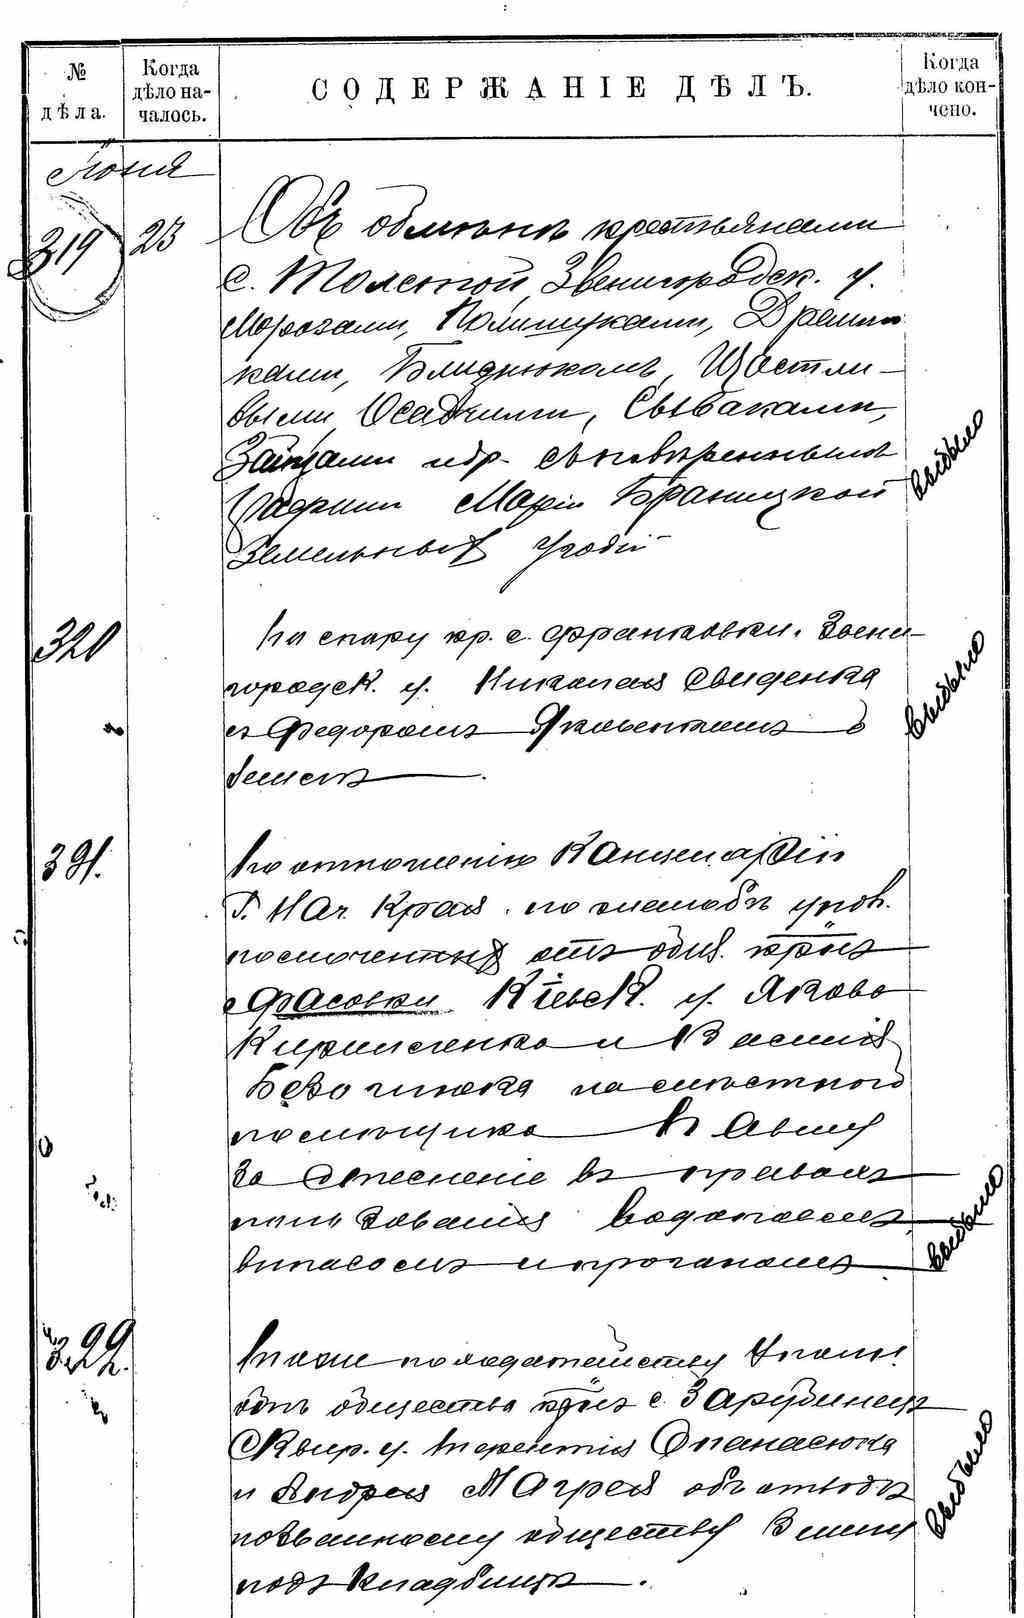 № дѣла.
Когда дѣло на-чалось.
СОДЕРЖАНІЕ ДѢЛЪ.
Когда дѣло кон-чено.
Іюня
319
23
Объ обмѣнѣ крестьянами
с. Толстой, Звенигородск. у.
Морозами, Полищуками, Дремлю
ками, Блиднюкомъ, Щастли-
выми, Осадчими, Сываками,
Зайцами и др. съ повѣренными
Графини Маріи Браницкой
Земельныхъ угодій
выбыло
320
По спору кр. с. Франковки, Звени-
городск. у. Николая Свиденка
съ Федоромъ Яковенкомъ о
землѣ.
выбыло
321.
По отношенію Канцеляріи
Г. Нач. Края по жалобѣ упов.
номоченныхъ отъ общ. крнъ
с. Фасовки Кіевск. у. Якова
Кириленка и Василія
на мѣстного
помѣщика Павшу
За стесненіе въ правахъ
пользованія водопоемъ,
выпасомъ и прогономъ.
выбыло
322.
По ходатайству Уполн.
отъ общества крнъ с. Зарубинецъ
Сквир. у. Терентія Опанасюка
и Андрея Магрея объ отводѣ
названному обществу Земли
подъ кладбище.
выбыло